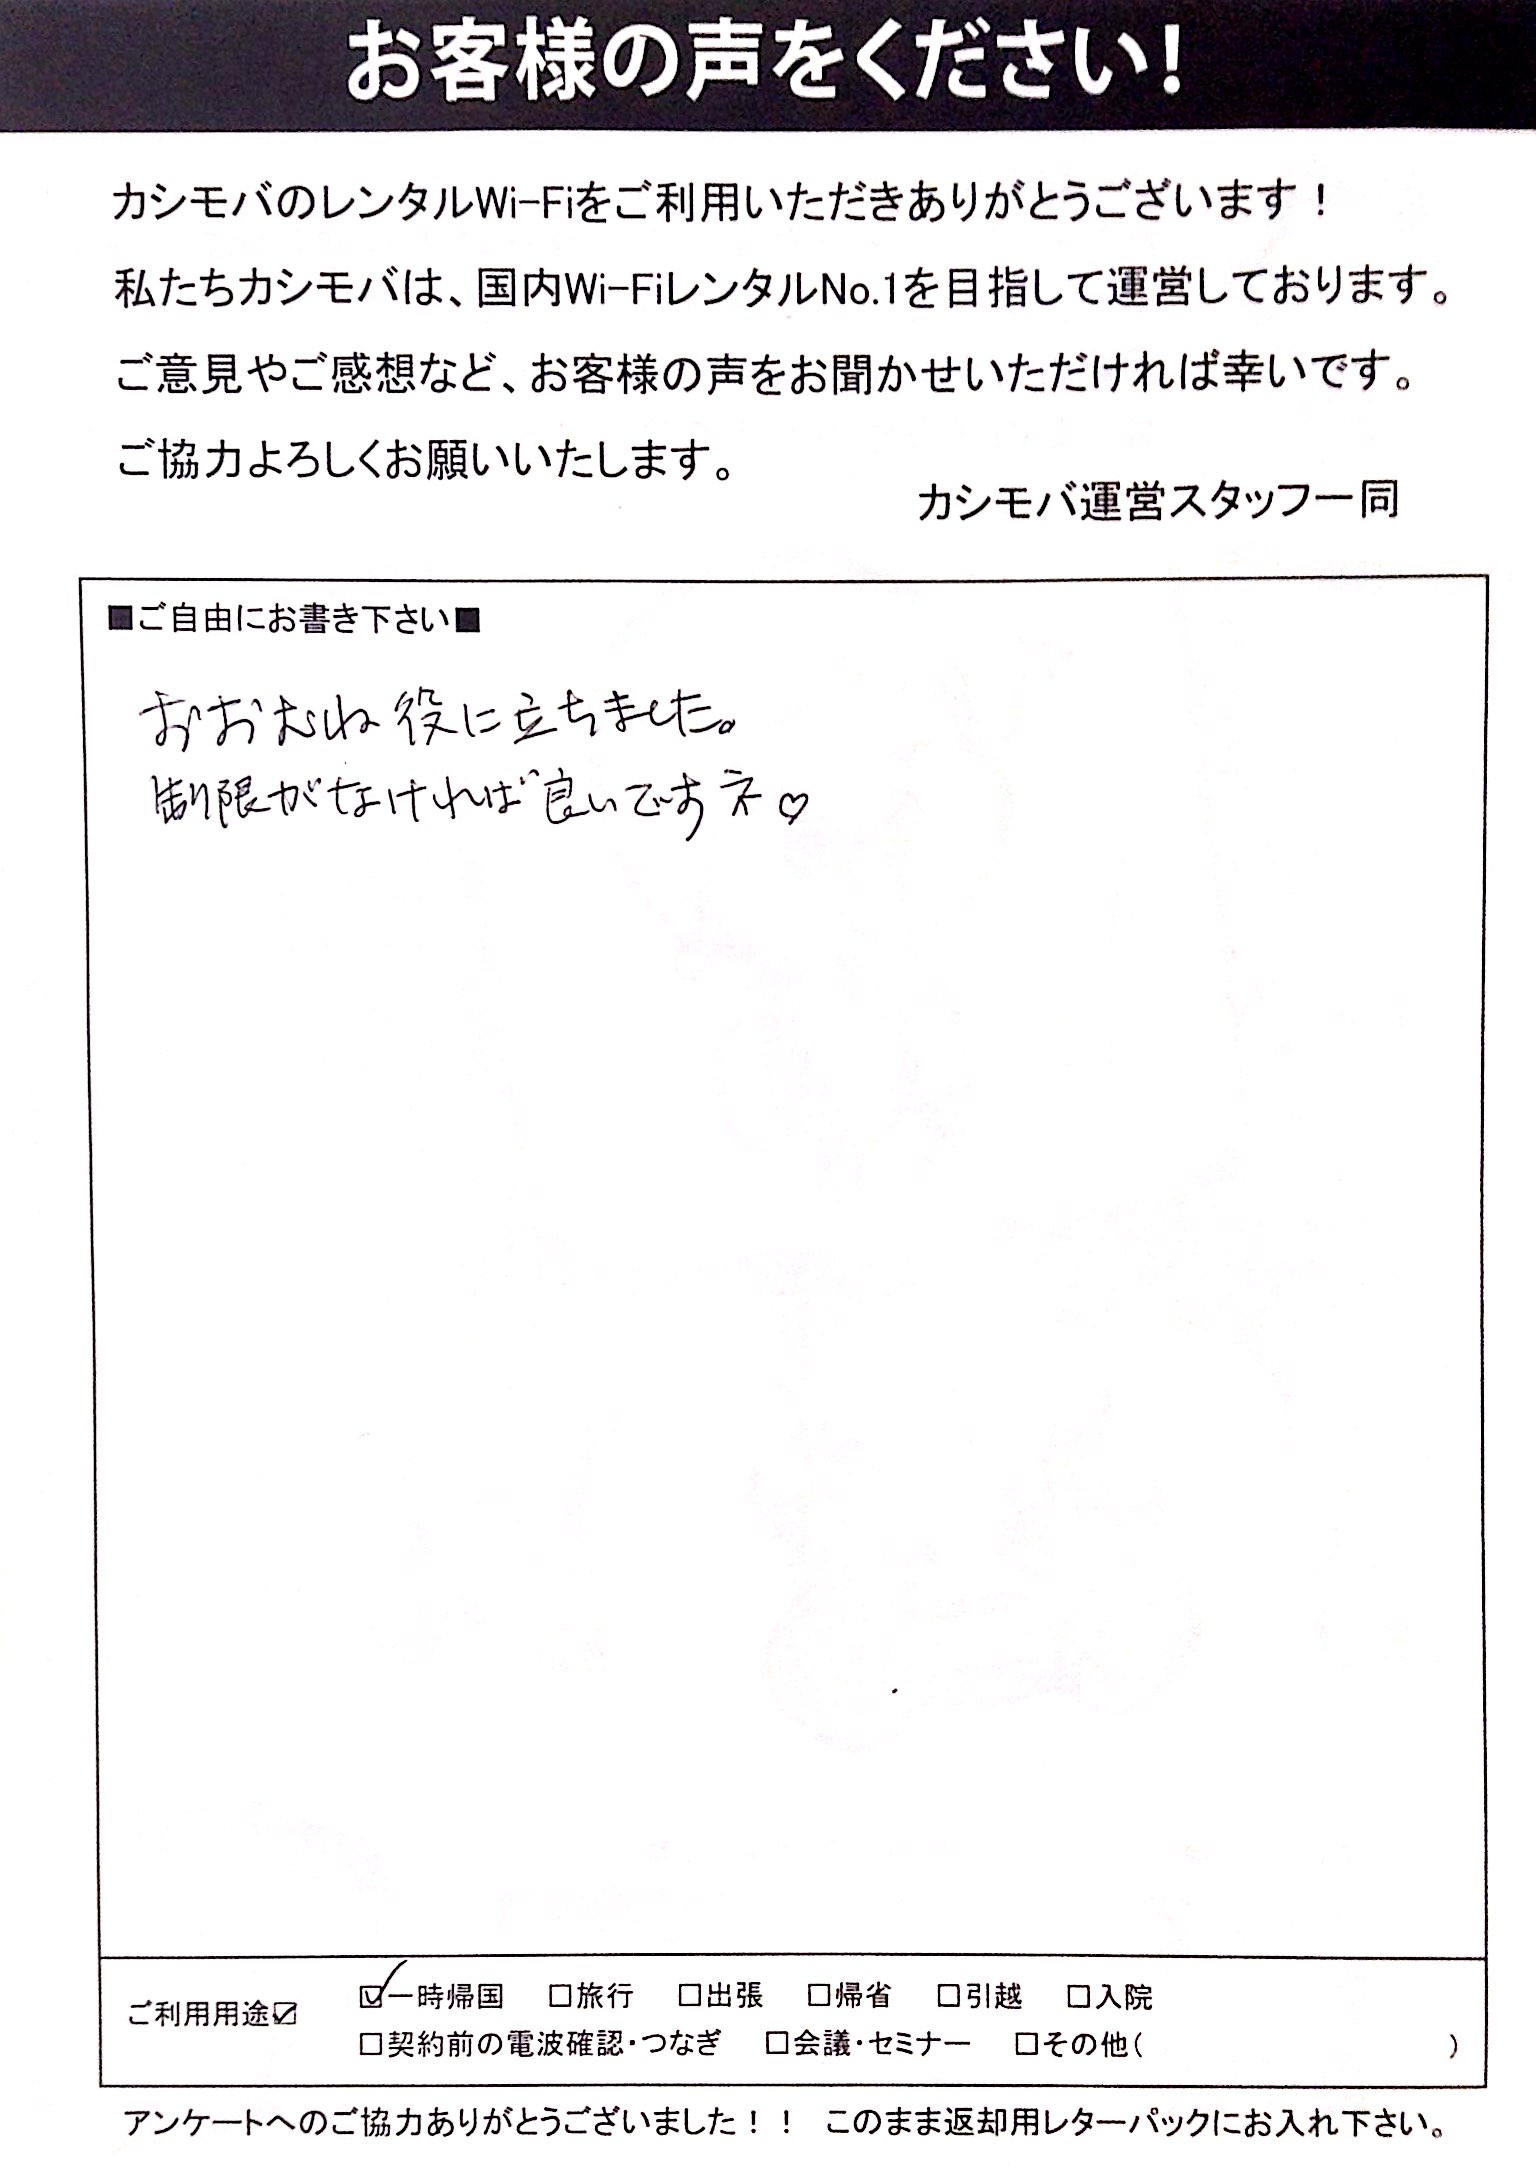 お客様の声をください!
カシモバのレンタルWi-Fiをご利用いただきありがとうございます！
私たちカシモバは、国内Wi-FiレンタルNo.1を目指して運営しております。
ご意見やご感想など、お客様の声をお聞かせいただければ幸いです。
ご協力よろしくお願いいたします。
カシモバ運営スタッフ一同
■ご自由にお書き下さい■
おおむね役に立ちました。
制限がなければ良いですネ♡
ご利用用途☑
☑一時帰国 □旅行 □出張 □帰省 □引越 □入院
□契約前の電波確認・つなぎ □会議・セミナー □その他( )
アンケートへのご協力ありがとうございました！！ このまま返却用レターパックにお入れ下さい。